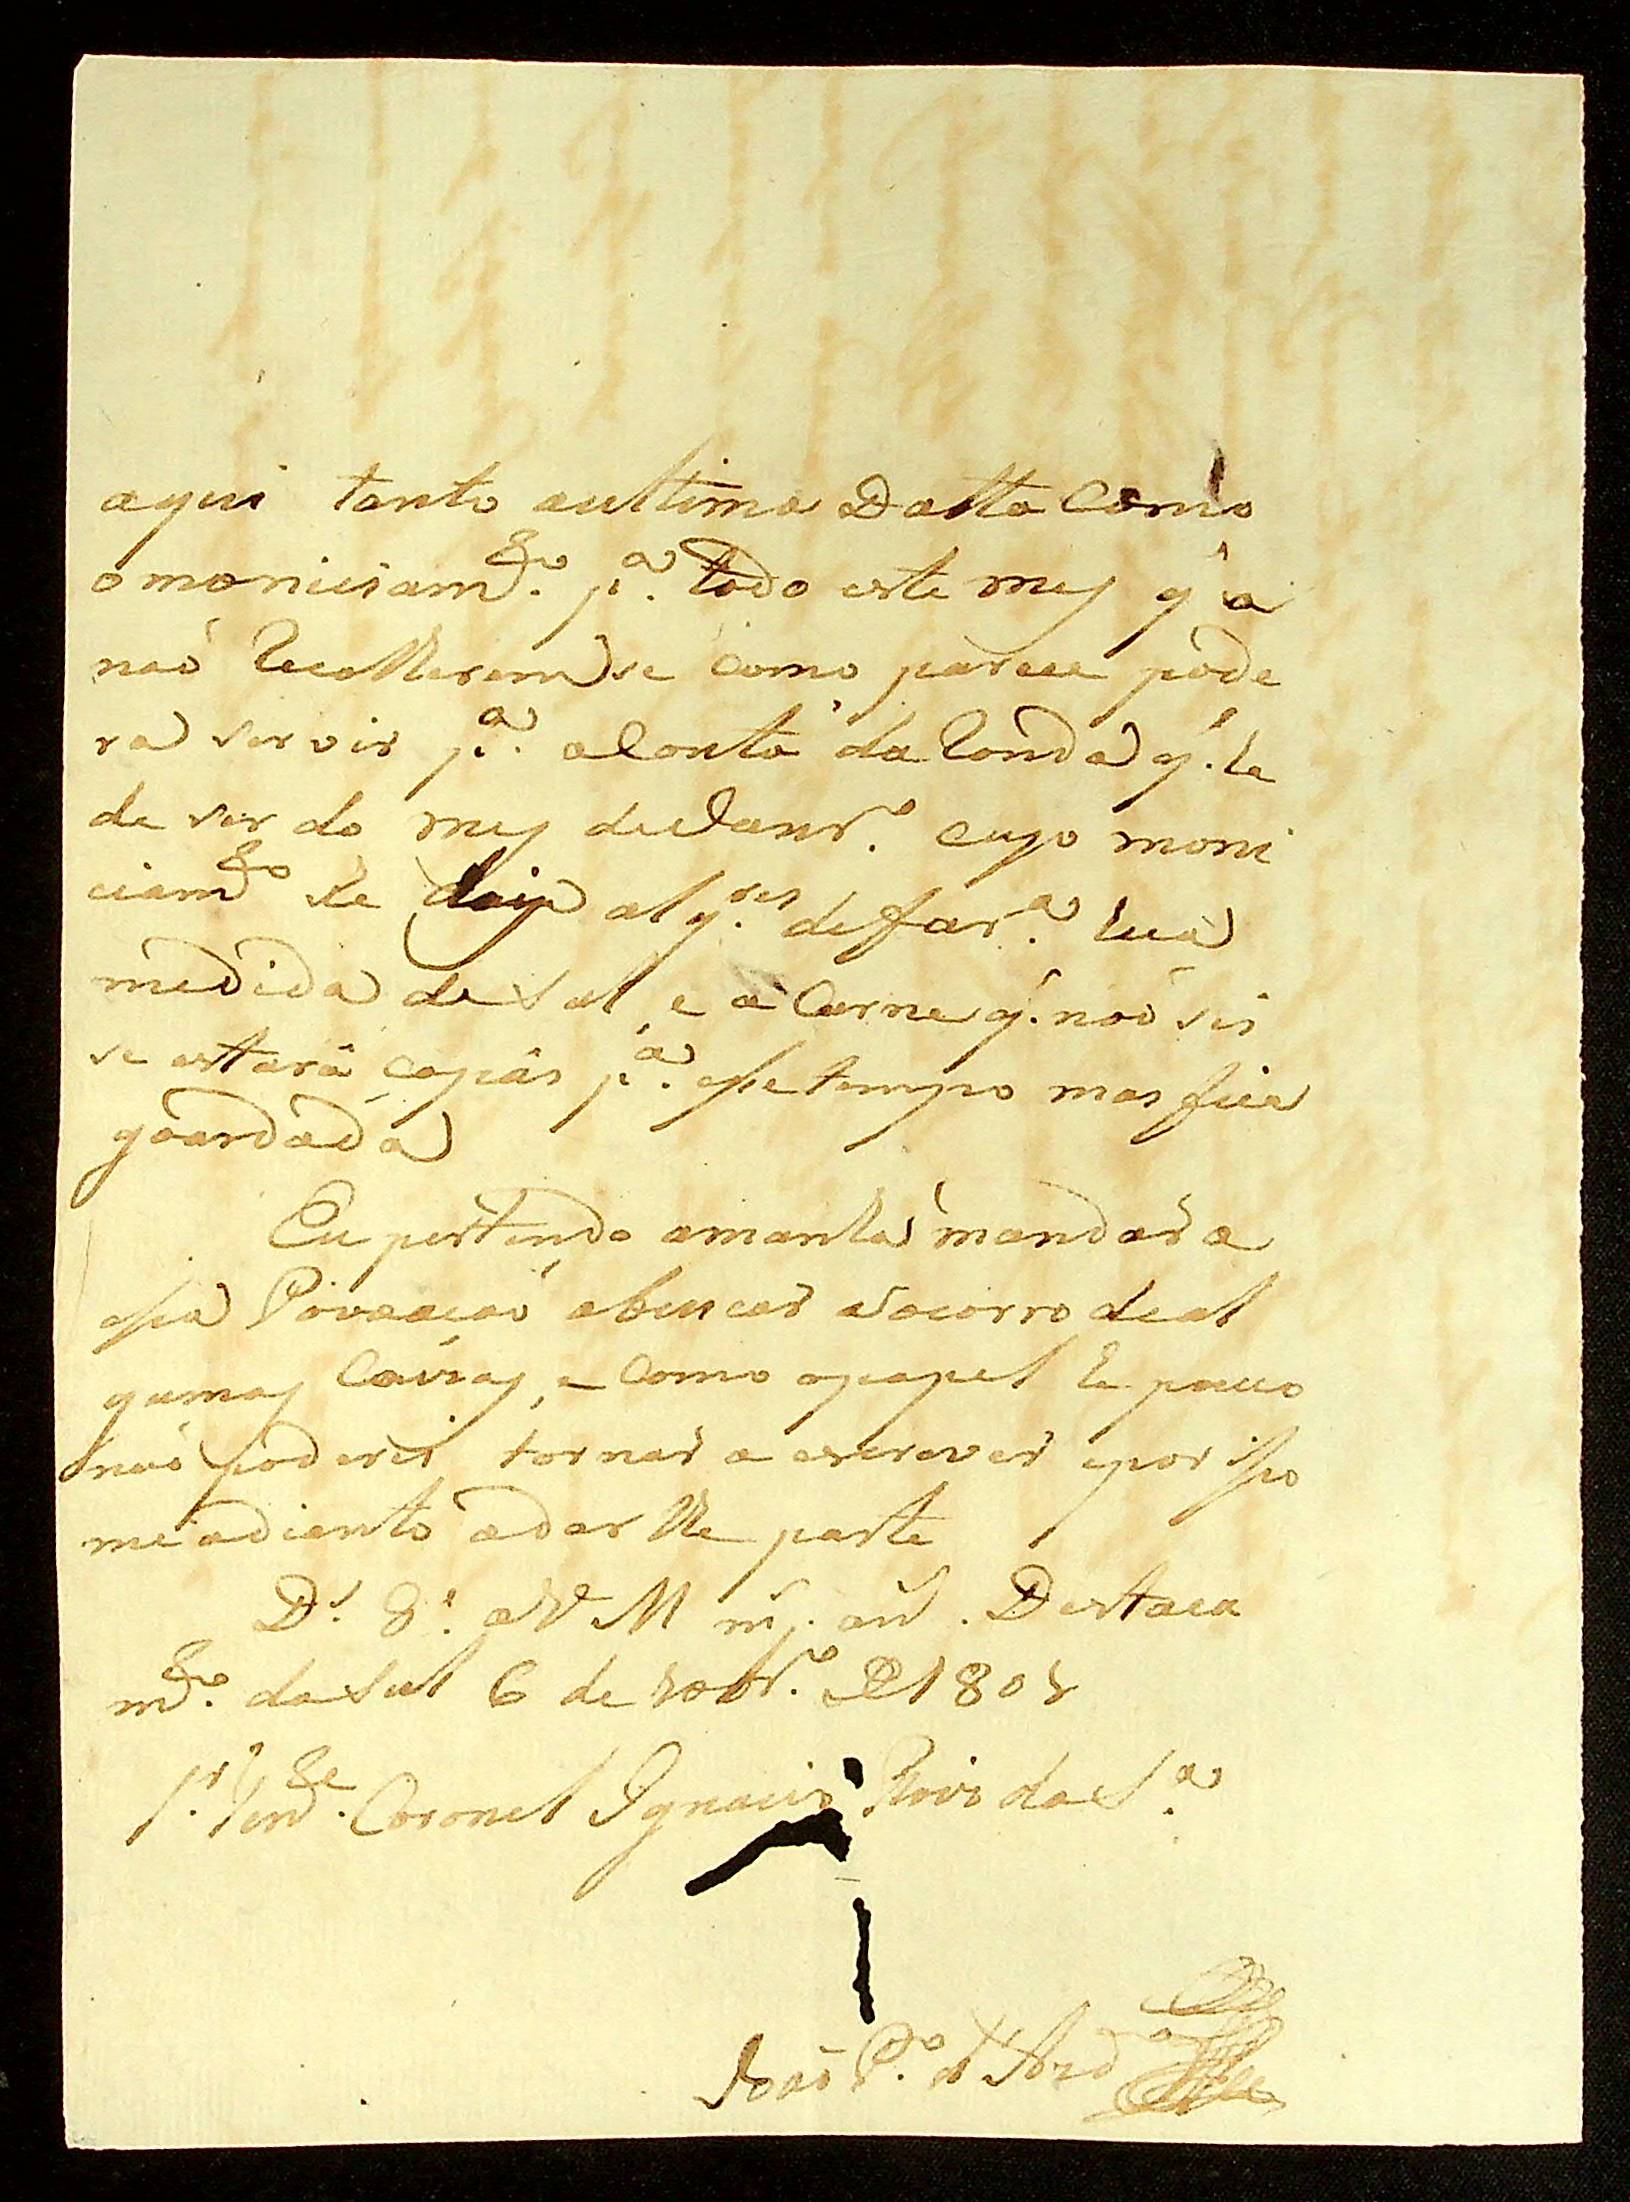 aqui tanto aultima Datta Como
omoniciam.to p.a todo este mes q' a
naõ Recolherem se como parece pode
ra servir p.a a Conta da Ronda q.' he
de ser do mes de Janr.o cujo moni
ciam.to he dois alq.res de far.a huã
medida de Sal, e a Carne q.' naõ sei
se estará capás p.a esse tempo mas fica
goardada
Eu pertendo amanhã mandar a
essa Povoaçaõ abuscar o Socorro de al
gumas Couzas, e Como opapel he pouco
naõ poderei tornar a escrever epor isso
me adianto adar lhe parte
D.s g.e a V. M m.s an.s Destaca
m.to do Sul 6 de 10br.o D 180
S.r Ten.te Coronel Ignacio da S.a
Joaõ P.o d'